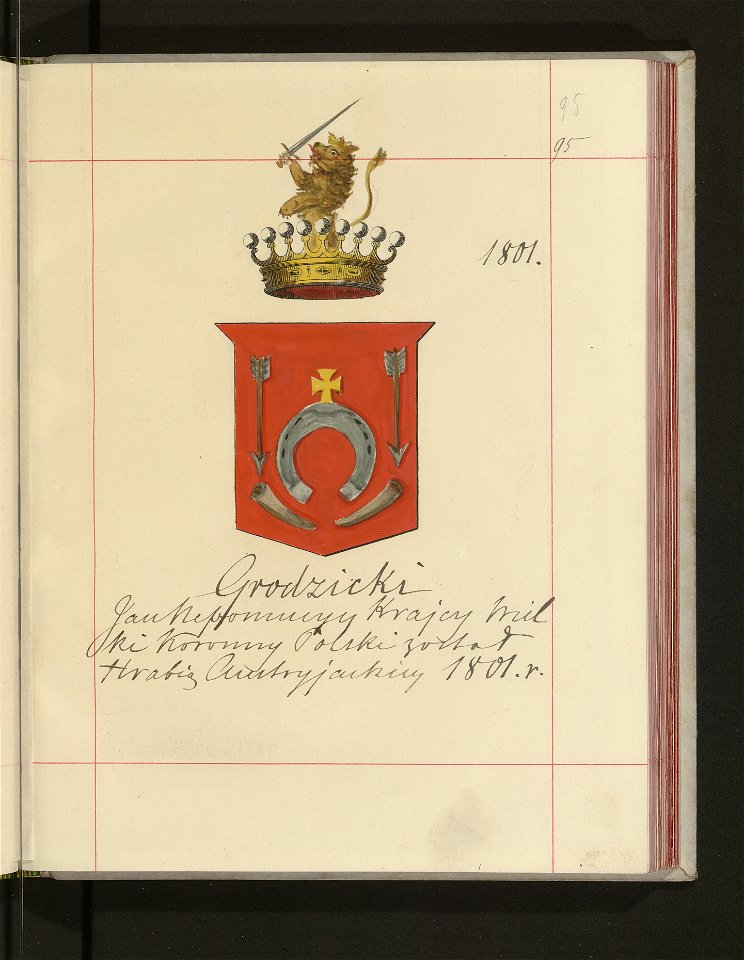 95
95
1801.
Grodzicki
Jan Nepomucyn Krajczy Wiel
ki Koronny Polski został
Hrabią Austryjackim 1801. r.